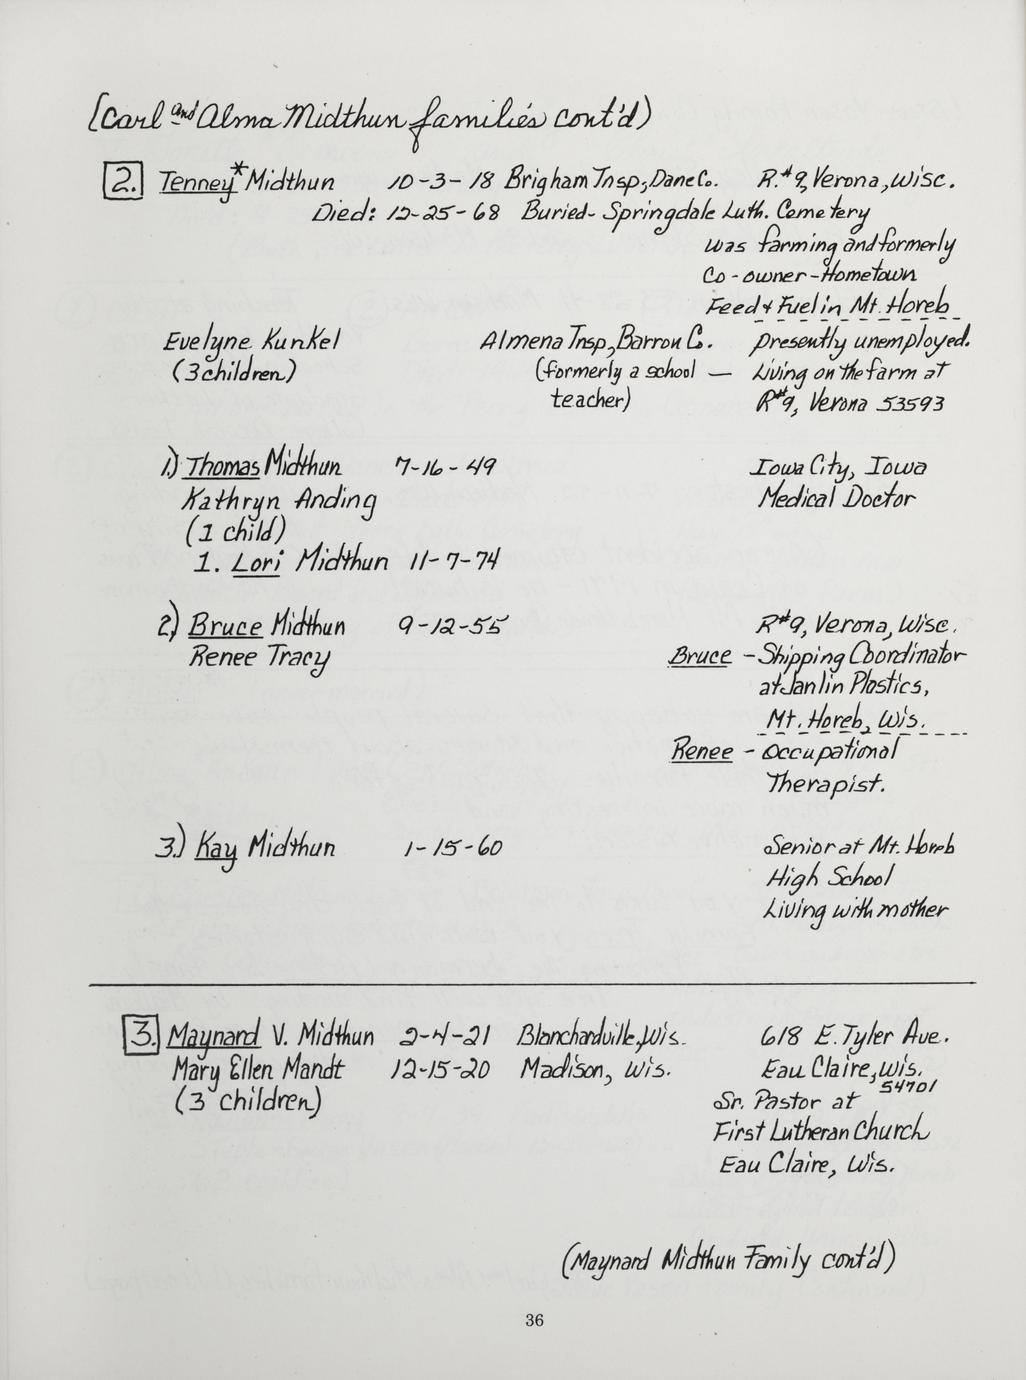 (Carl and Alma Midthun families cont'd)
2. Tenney* Midthun 10-3-18 Brigham Tnsp, Dane Co. R.#9, Verona, Wisc.
Died: 12-25-68 Buried- Springdale Luth. Cemetery
was farming and formerly
Co-owner-Hometown
Feed & Fuel in Mt. Horeb
Evelyne Kunkel Almena Tnsp, Barron C. presently unemployed.
(3 children) (formerly a school — Living on the farm at
teacher) R#9, Verona 53593
1.) Thomas Midthun 7-16-49 Iowa City, Iowa
Kathryn Anding Medical Doctor
(1 child)
1. Lori Midthun 11-7-74
2.) Bruce Midthun 9-12-55 R#9, Verona, Wisc.
Renee Tracy Bruce - Shipping Coordinator
at Janlin Plastics,
Mt. Horeb, Wis.
Renee - Occupational
Therapist.
3.) Kay Midthun 1-15-60 Senior at Mt. Horeb
High School
Living with mother
3. Maynard V. Midthun 2-4-21 Blanchardville, Wis. 618 E. Tyler Ave.
Mary Ellen Mandt 12-15-20 Madison, Wis. Eau Claire, Wis.
54701
(3 children) Sr. Pastor at
First Lutheran Church
Eau Claire, Wis.
(Maynard Midthun Family cont'd)
36